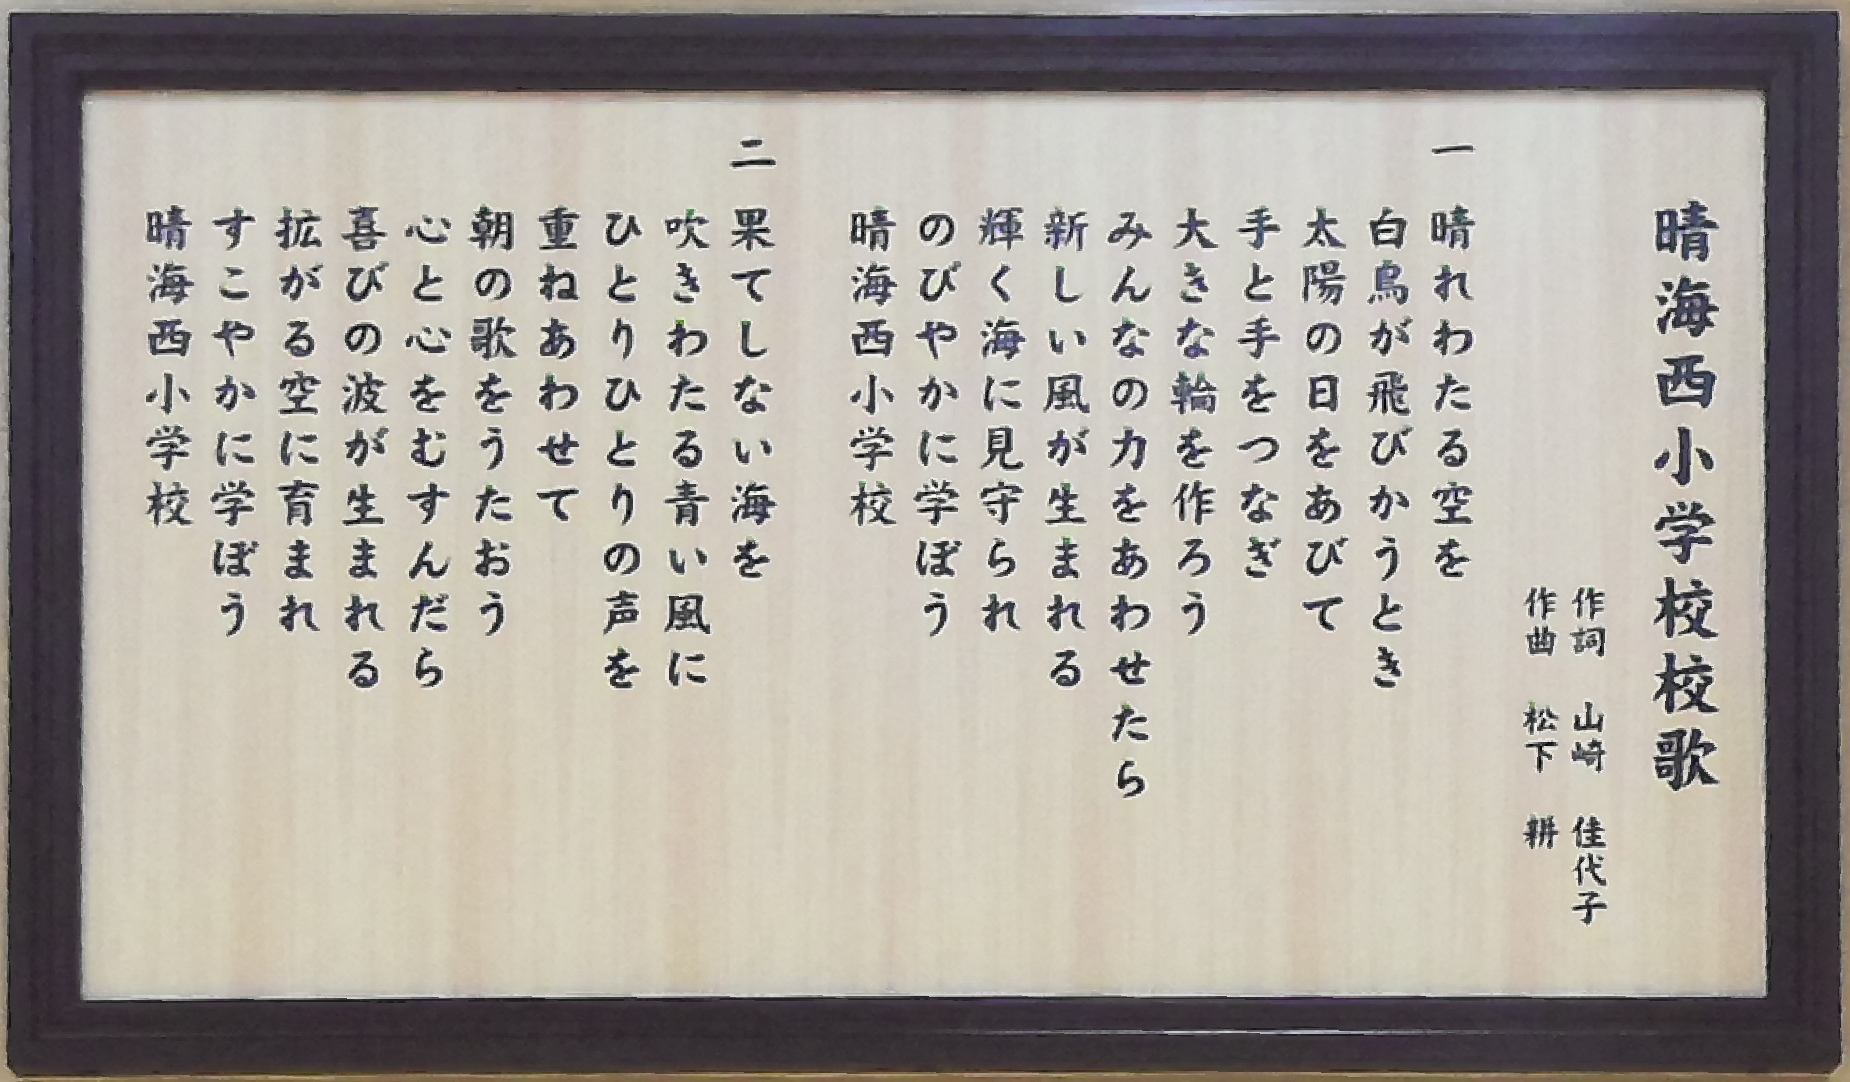 晴海西小学校校歌
作詞 山崎 佳代子
作曲 松下 耕
一 晴れわたる空を
白鳥が飛びかうとき
太陽の日をあびて
手と手をつなぎ
大きな輪を作ろう
みんなの力をあわせたら
新しい風が生まれる
輝く海に見守られ
のびやかに学ぼう
晴海西小学校
二 果てしない海を
吹きわたる青い風に
ひとりひとりの声を
重ねあわせて
朝の歌をうたおう
心と心をむすんだら
喜びの波が生まれる
拡がる空に育まれ
すこやかに学ぼう
晴海西小学校